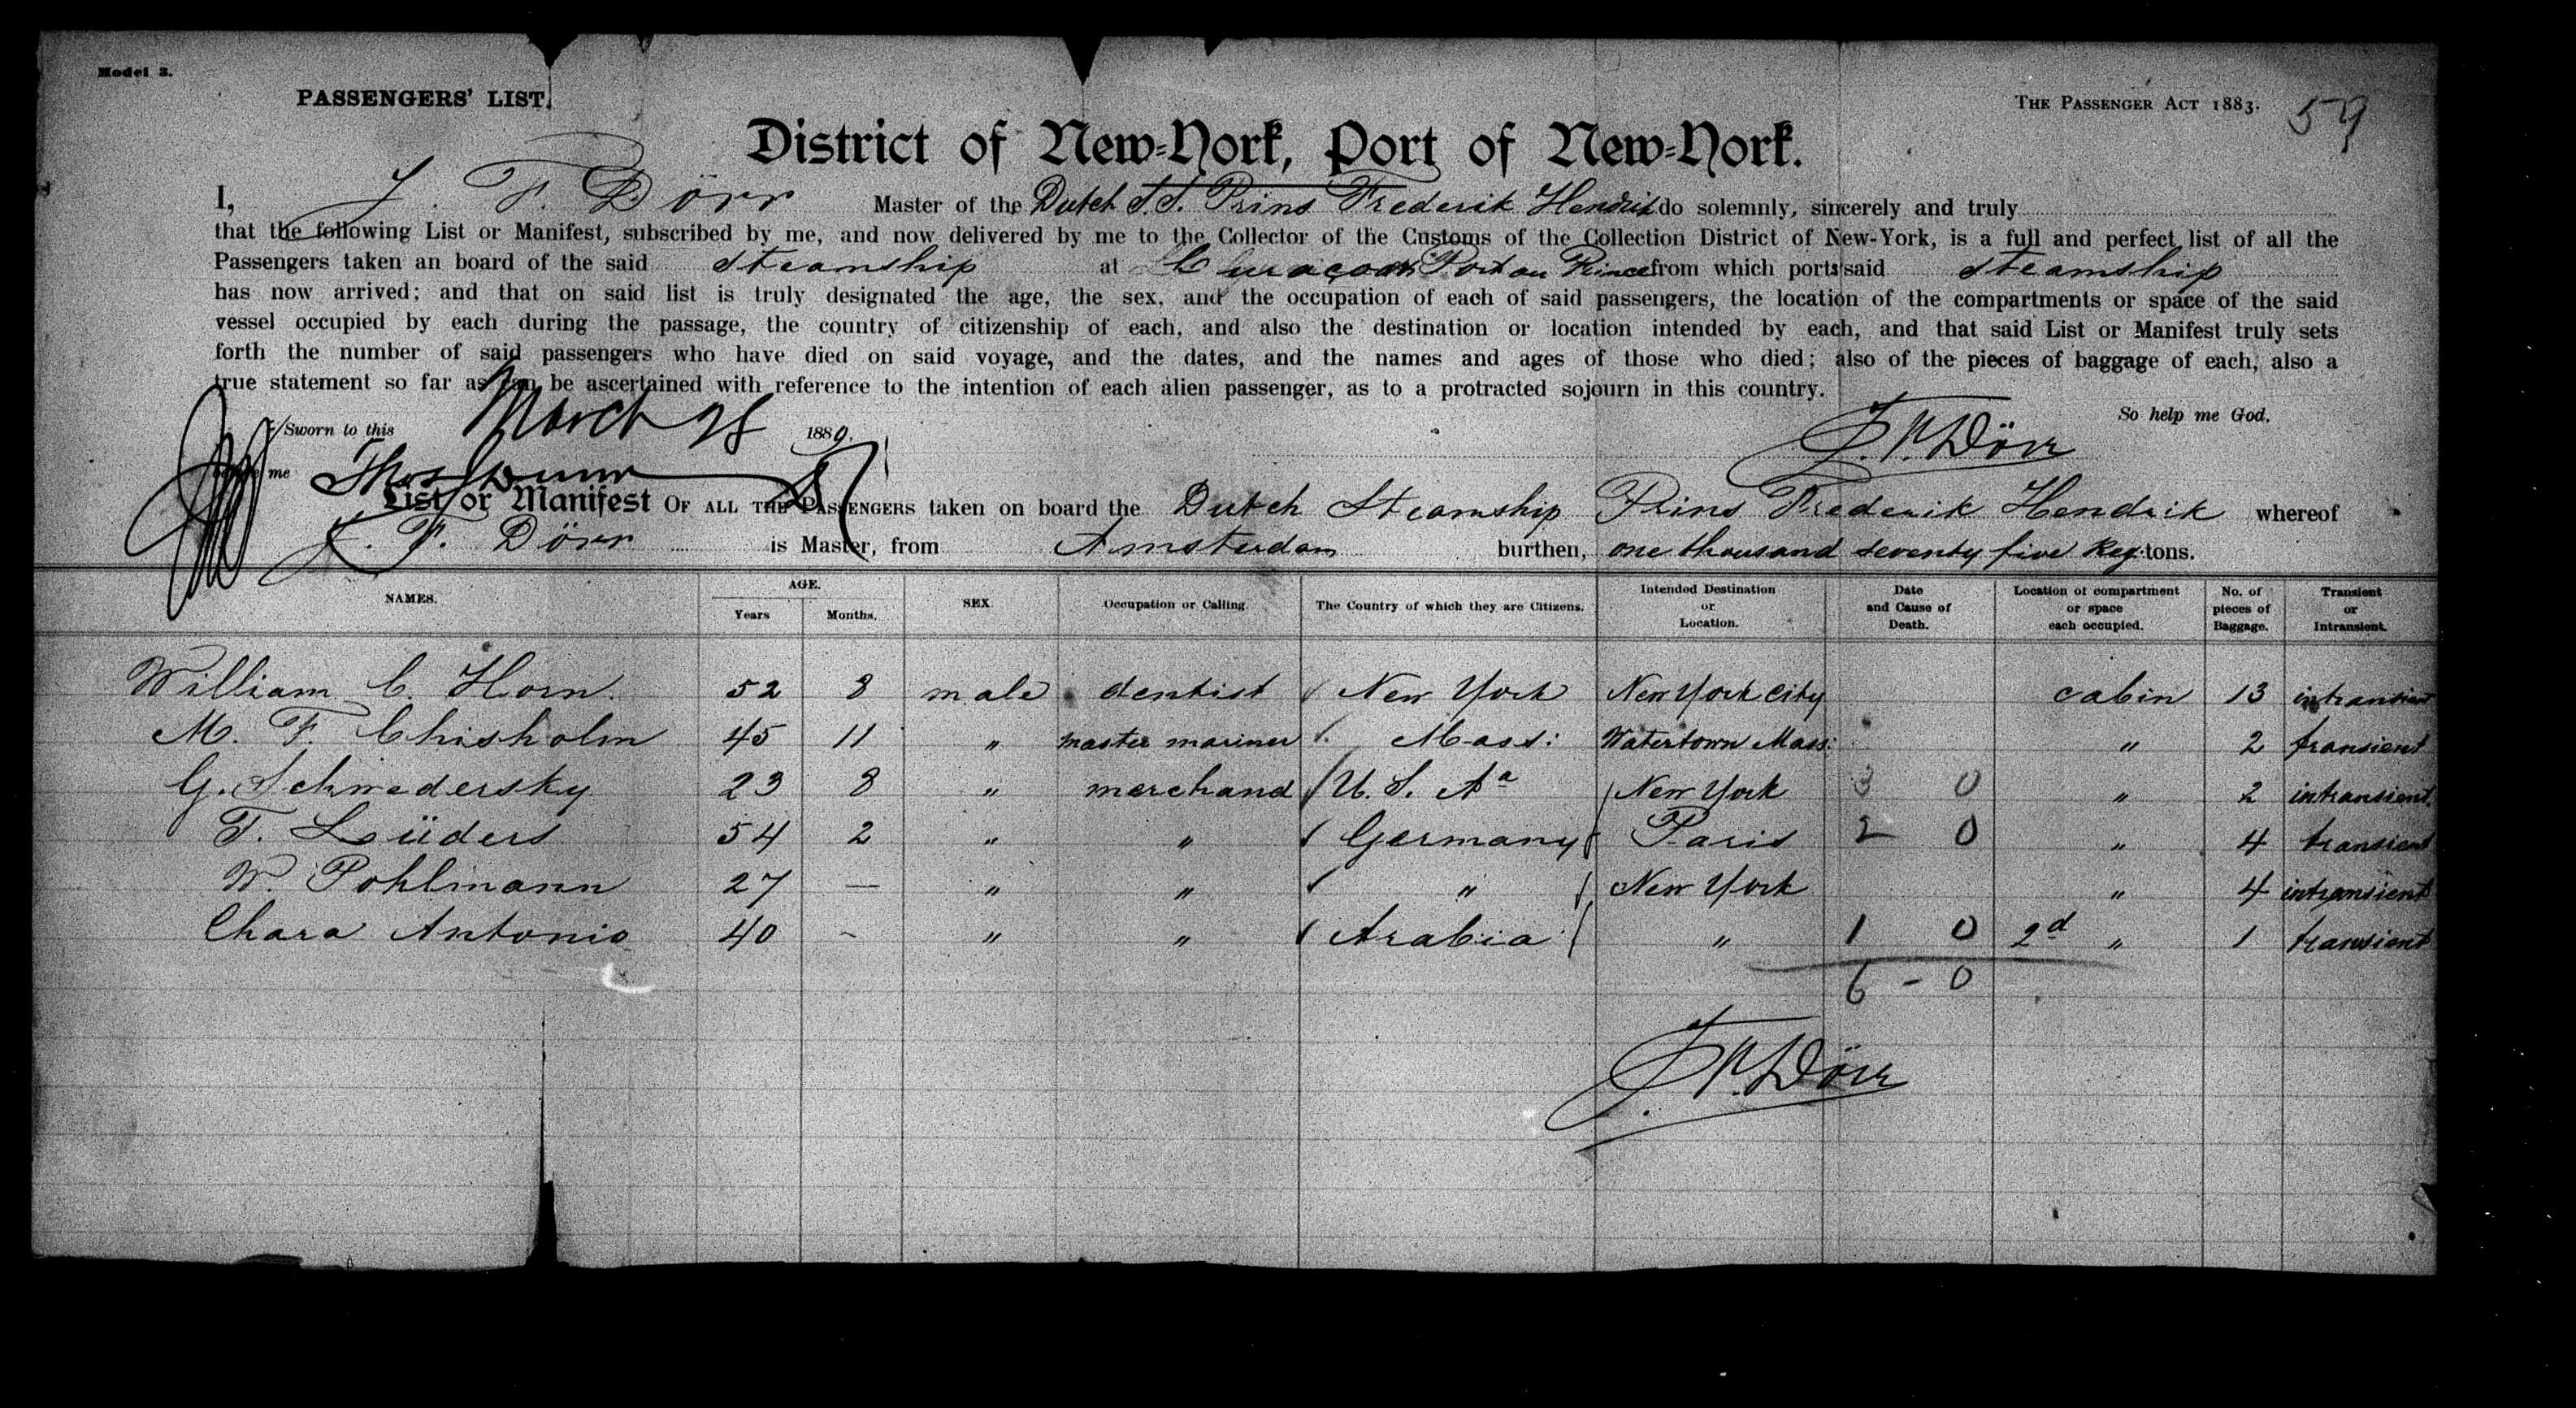 Model 3.
PASSENGERS' LIST.
THE PASSENGER ACT 1883.
59
District of New-York, Port of New-York.
I, J. F. Dörr Master of the Dutch S.S. Prins Frederik Hendrik do solemnly, sincerely and truly
that the following List or Manifest, subscribed by me, and now delivered by me to the Collector of the Customs of the Collection District of New-York, is a full and perfect list of all the
Passengers taken an board of the said steamship at Curaçao Port au Prince from which ports said steamship
has now arrived; and that on said list is truly designated the age, the sex, and the occupation of each of said passengers, the location of the compartments or space of the said
vessel occupied by each during the passage, the country of citizenship of each, and also the destination or location intended by each, and that said List or Manifest truly sets
forth the number of said passengers who have died on said voyage, and the dates, and the names and ages of those who died; also of the pieces of baggage of each, also a
true statement so far as can be ascertained with reference to the intention of each alien passenger, as to a protracted sojourn in this country.
So help me God.
Sworn to this March 1889.
J. F. Dörr
me Thos Dunn
List or Manifest OF ALL THE PASSENGERS taken on board the Dutch Steamship Prins Frederik Hendrik whereof
J. F. Dörr is Master, from Amsterdam burthen, one thousand seventy five Reg. tons.
NAMES. AGE. Years Months. SEX. Occupation or Calling. The Country of which they are Citizens. Intended Destination or Location. Date and Cause of Death. Location of compartment or space each occupied. No. of pieces of Baggage. Transient or Intransient.
William C. Horn. 52 8 male dentist New York New York City cabin 13 intransient
M. F. Chisholm 45 11 " master mariner Mass: Watertown Mass: " 2 transient
G. Schwedersky 23 8 " merchand U. S. Aª New York 3 0 " 2 intransient
T. Lüders 54 2 " " Germany Paris 2 0 " 4 transient
W. Pohlmann 27 — " " " New York " 4 intransient
Chara Antonio 40 - " " Arabia " 1 0 2d " 1 transient
6 - 0
J. F. Dörr